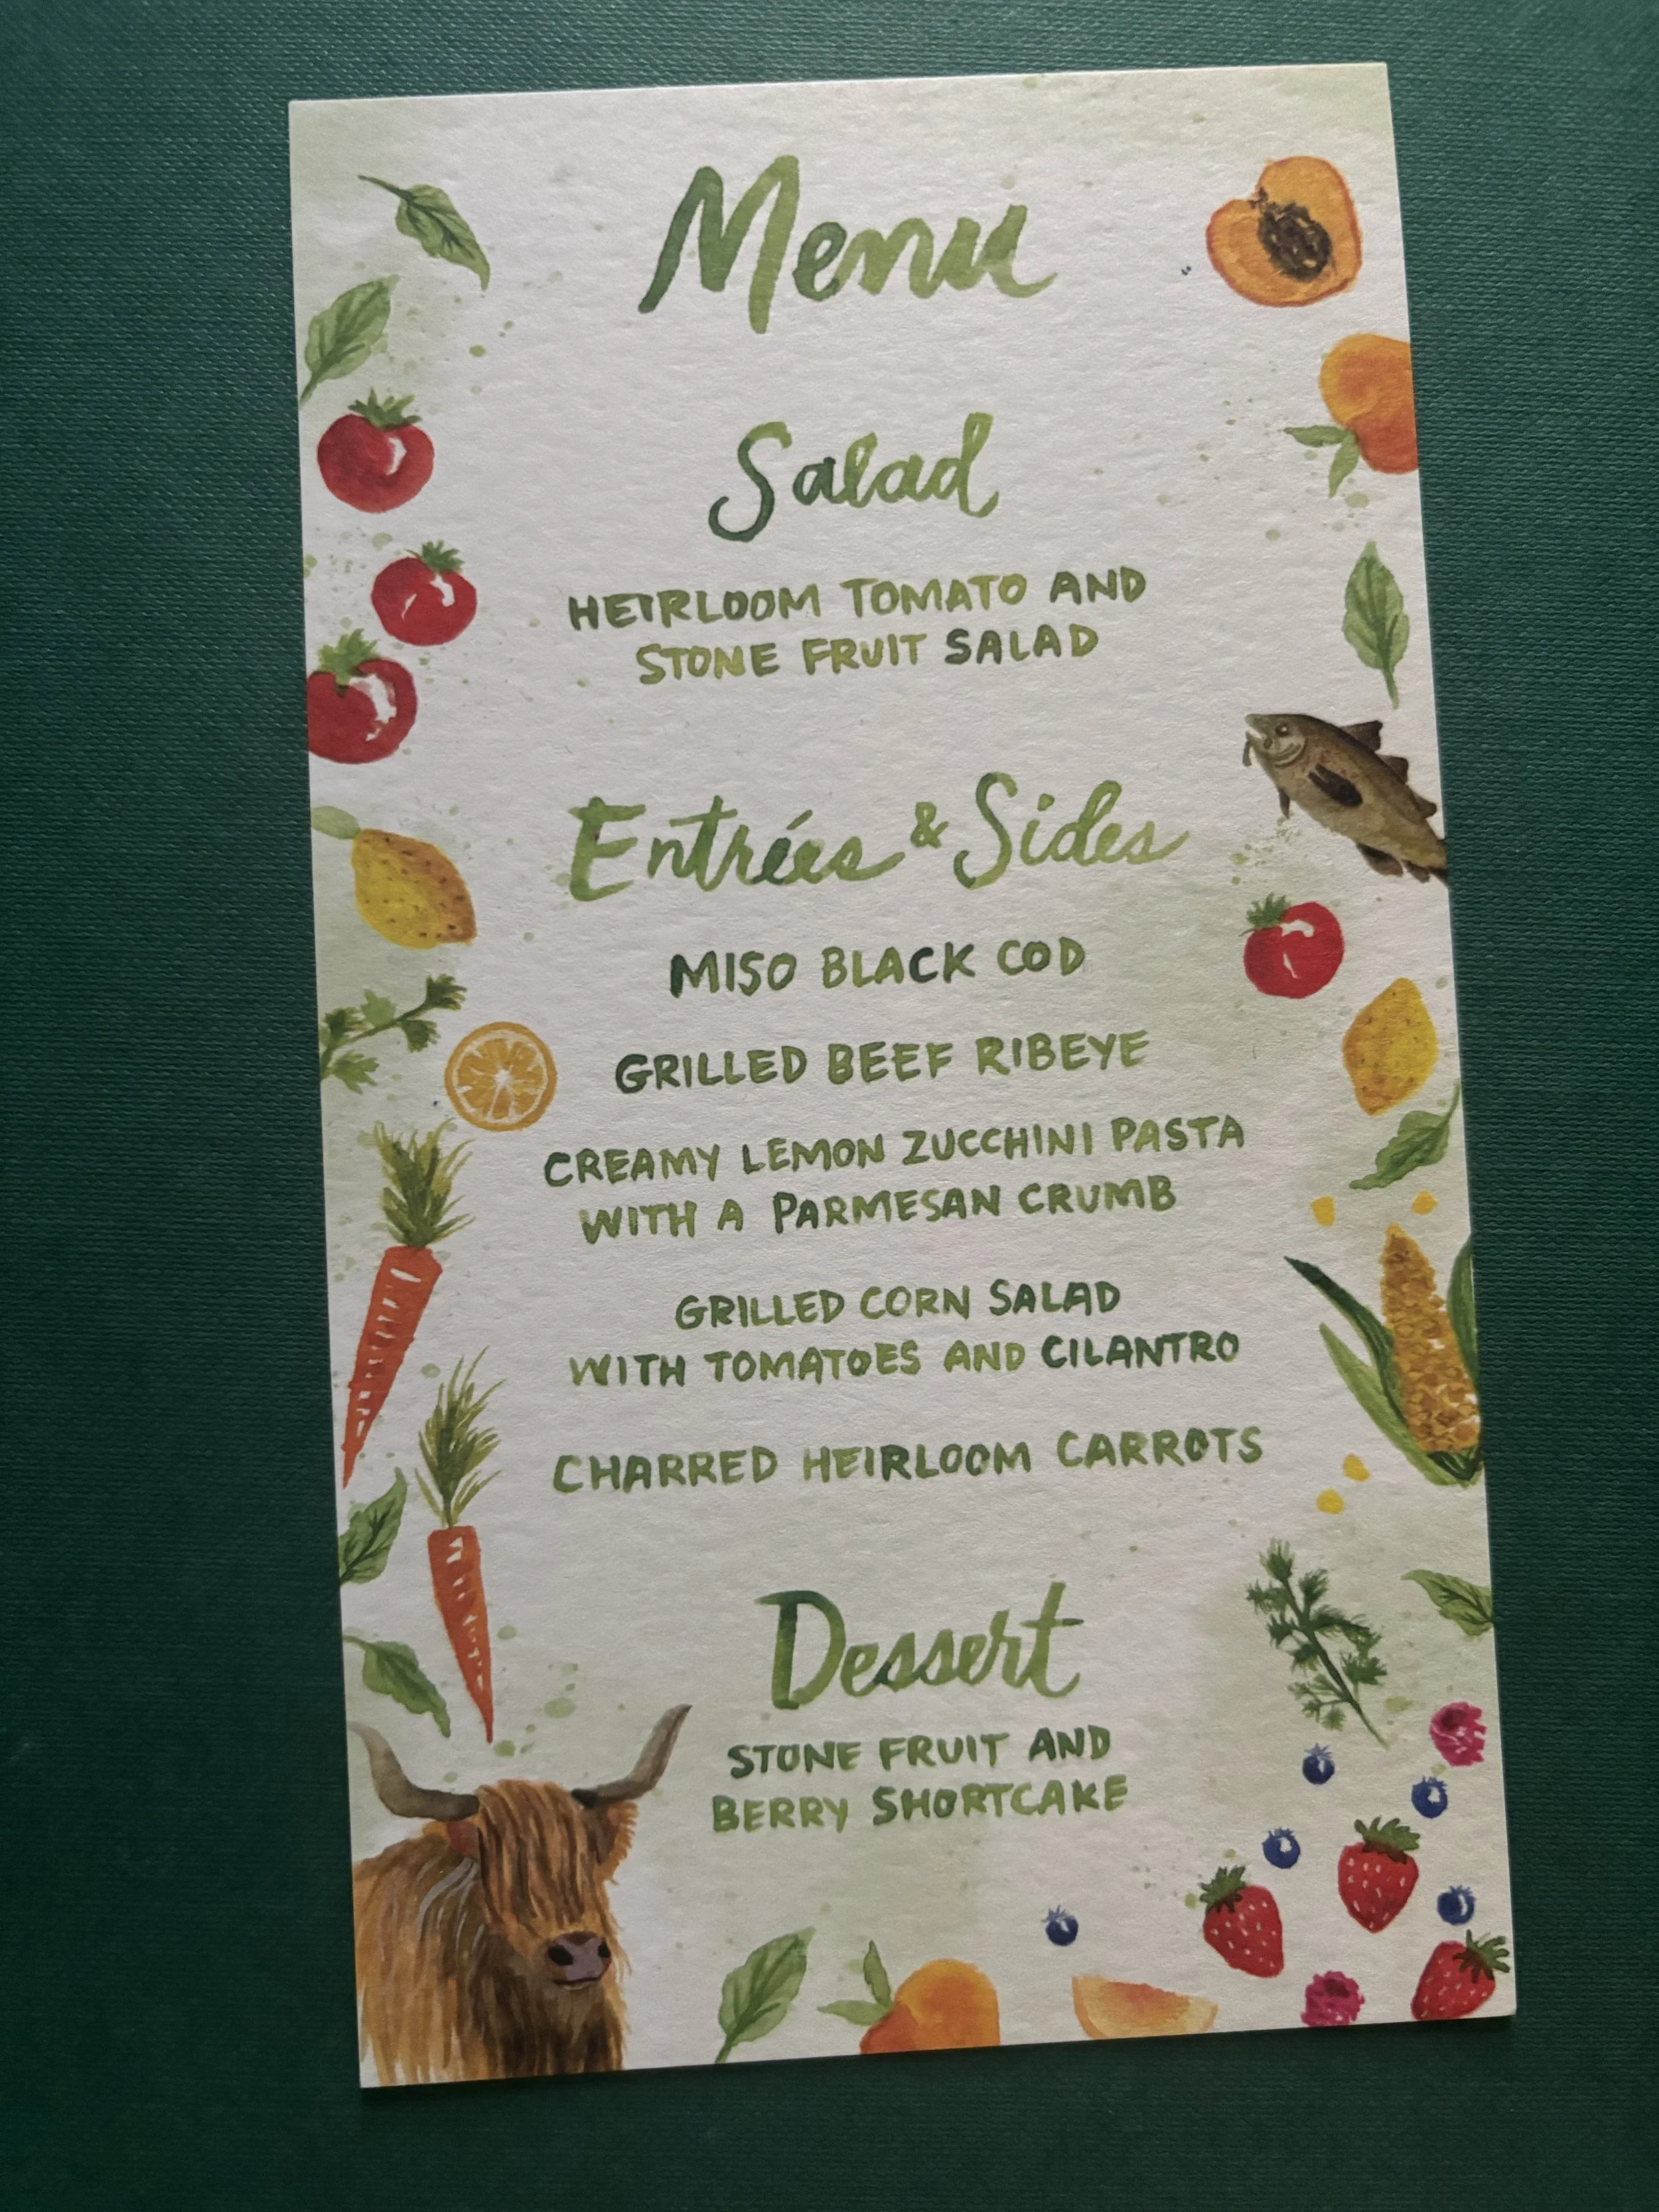 Menu
Salad
HEIRLOOM TOMATO AND
STONE FRUIT SALAD
Entrées & Sides
MISO BLACK COD
GRILLED BEEF RIBEYE
CREAMY LEMON ZUCCHINI PASTA
WITH A PARMESAN CRUMB
GRILLED CORN SALAD
WITH TOMATOES AND CILANTRO
CHARRED HEIRLOOM CARROTS
Dessert
STONE FRUIT AND
BERRY SHORTCAKE